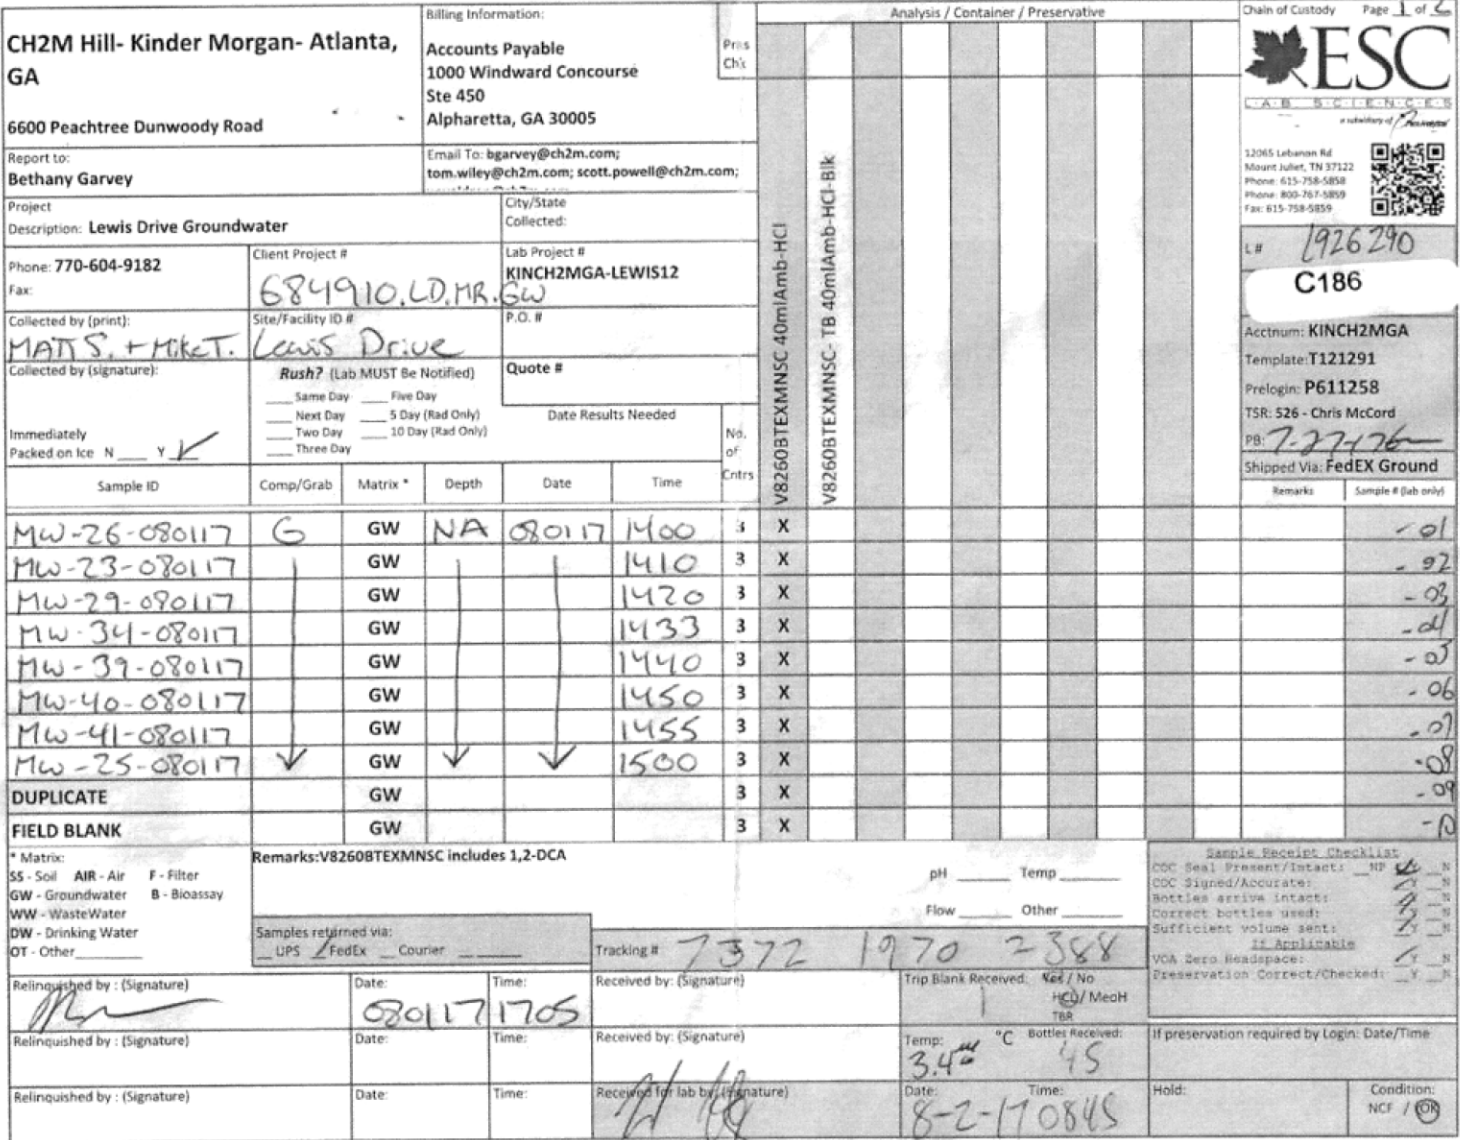 CH2M Hill- Kinder Morgan- Atlanta, GA
6600 Peachtree Dunwoody Road
Billing Information:
Accounts Payable
1000 Windward Concourse
Ste 450
Alpharetta, GA 30005
Pres
Chk
Analysis / Container / Preservative
Chain of Custody Page 1 of 2
ESC
L·A·B S·C·I·E·N·C·E·S
a subsidiary of
12065 Lebanon Rd
Mount Juliet, TN 37122
Phone: 615-758-5858
Phone: 800-767-5859
Fax: 615-758-5859
Report to:
Bethany Garvey
Email To: bgarvey@ch2m.com;
tom.wiley@ch2m.com; scott.powell@ch2m.com;
Project
Description: Lewis Drive Groundwater
City/State
Collected:
Phone: 770-604-9182
Fax:
Client Project #
684910.LD.MR.GW
Lab Project #
KINCH2MGA-LEWIS12
Collected by (print):
MATT S. + Mike T.
Site/Facility ID #
Lewis Drive
P.O. #
Collected by (signature):
Rush? (Lab MUST Be Notified)
Same Day Five Day
Next Day 5 Day (Rad Only)
Two Day 10 Day (Rad Only)
Three Day
Quote #
Date Results Needed
Immediately
Packed on Ice N Y ✓
No.
of
Cntrs
V8260BTEXMNSC 40mlAmb-HCl
V8260BTEXMNSC- TB 40mlAmb-HCl-Blk
L# L926290
C186
Acctnum: KINCH2MGA
Template:T121291
Prelogin: P611258
TSR: 526 - Chris McCord
PB: 7-27-17
Shipped Via: FedEX Ground
Sample ID Comp/Grab Matrix * Depth Date Time Remarks Sample # (lab only)
MW-26-080117 G GW NA 080117 1400 3 X -01
MW-23-080117 GW 1410 3 X -02
MW-29-080117 GW 1420 3 X -03
MW-34-080117 GW 1433 3 X -04
MW-39-080117 GW 1440 3 X -05
MW-40-080117 GW 1450 3 X -06
MW-41-080117 GW 1455 3 X -07
MW-25-080117 GW 1500 3 X -08
DUPLICATE GW 3 X -09
FIELD BLANK GW 3 X -10
* Matrix:
SS - Soil AIR - Air F - Filter
GW - Groundwater B - Bioassay
WW - WasteWater
DW - Drinking Water
OT - Other
Remarks:V8260BTEXMNSC includes 1,2-DCA
pH Temp
Flow Other
Samples returned via:
UPS ✓ FedEx Courier
Tracking # 7372 1970 2388
Sample Receipt Checklist
COC Seal Present/Intact: NP Y N
COC Signed/Accurate: Y N
Bottles arrive intact: Y N
Correct bottles used: Y N
Sufficient volume sent: Y N
If Applicable
VOA Zero Headspace: Y N
Preservation Correct/Checked: Y N
Relinquished by : (Signature) Date: 080117 Time: 1705
Received by: (Signature)
Trip Blank Received: Yes / No
1
HCL / MeoH
TBR
Relinquished by : (Signature) Date: Time:
Received by: (Signature)
Temp: 3.4 °C Bottles Received: 45
If preservation required by Login: Date/Time
Relinquished by : (Signature) Date: Time:
Received for lab by: (Signature)
Date: 8-2-17 Time: 0845
Hold:
Condition:
NCF / OK